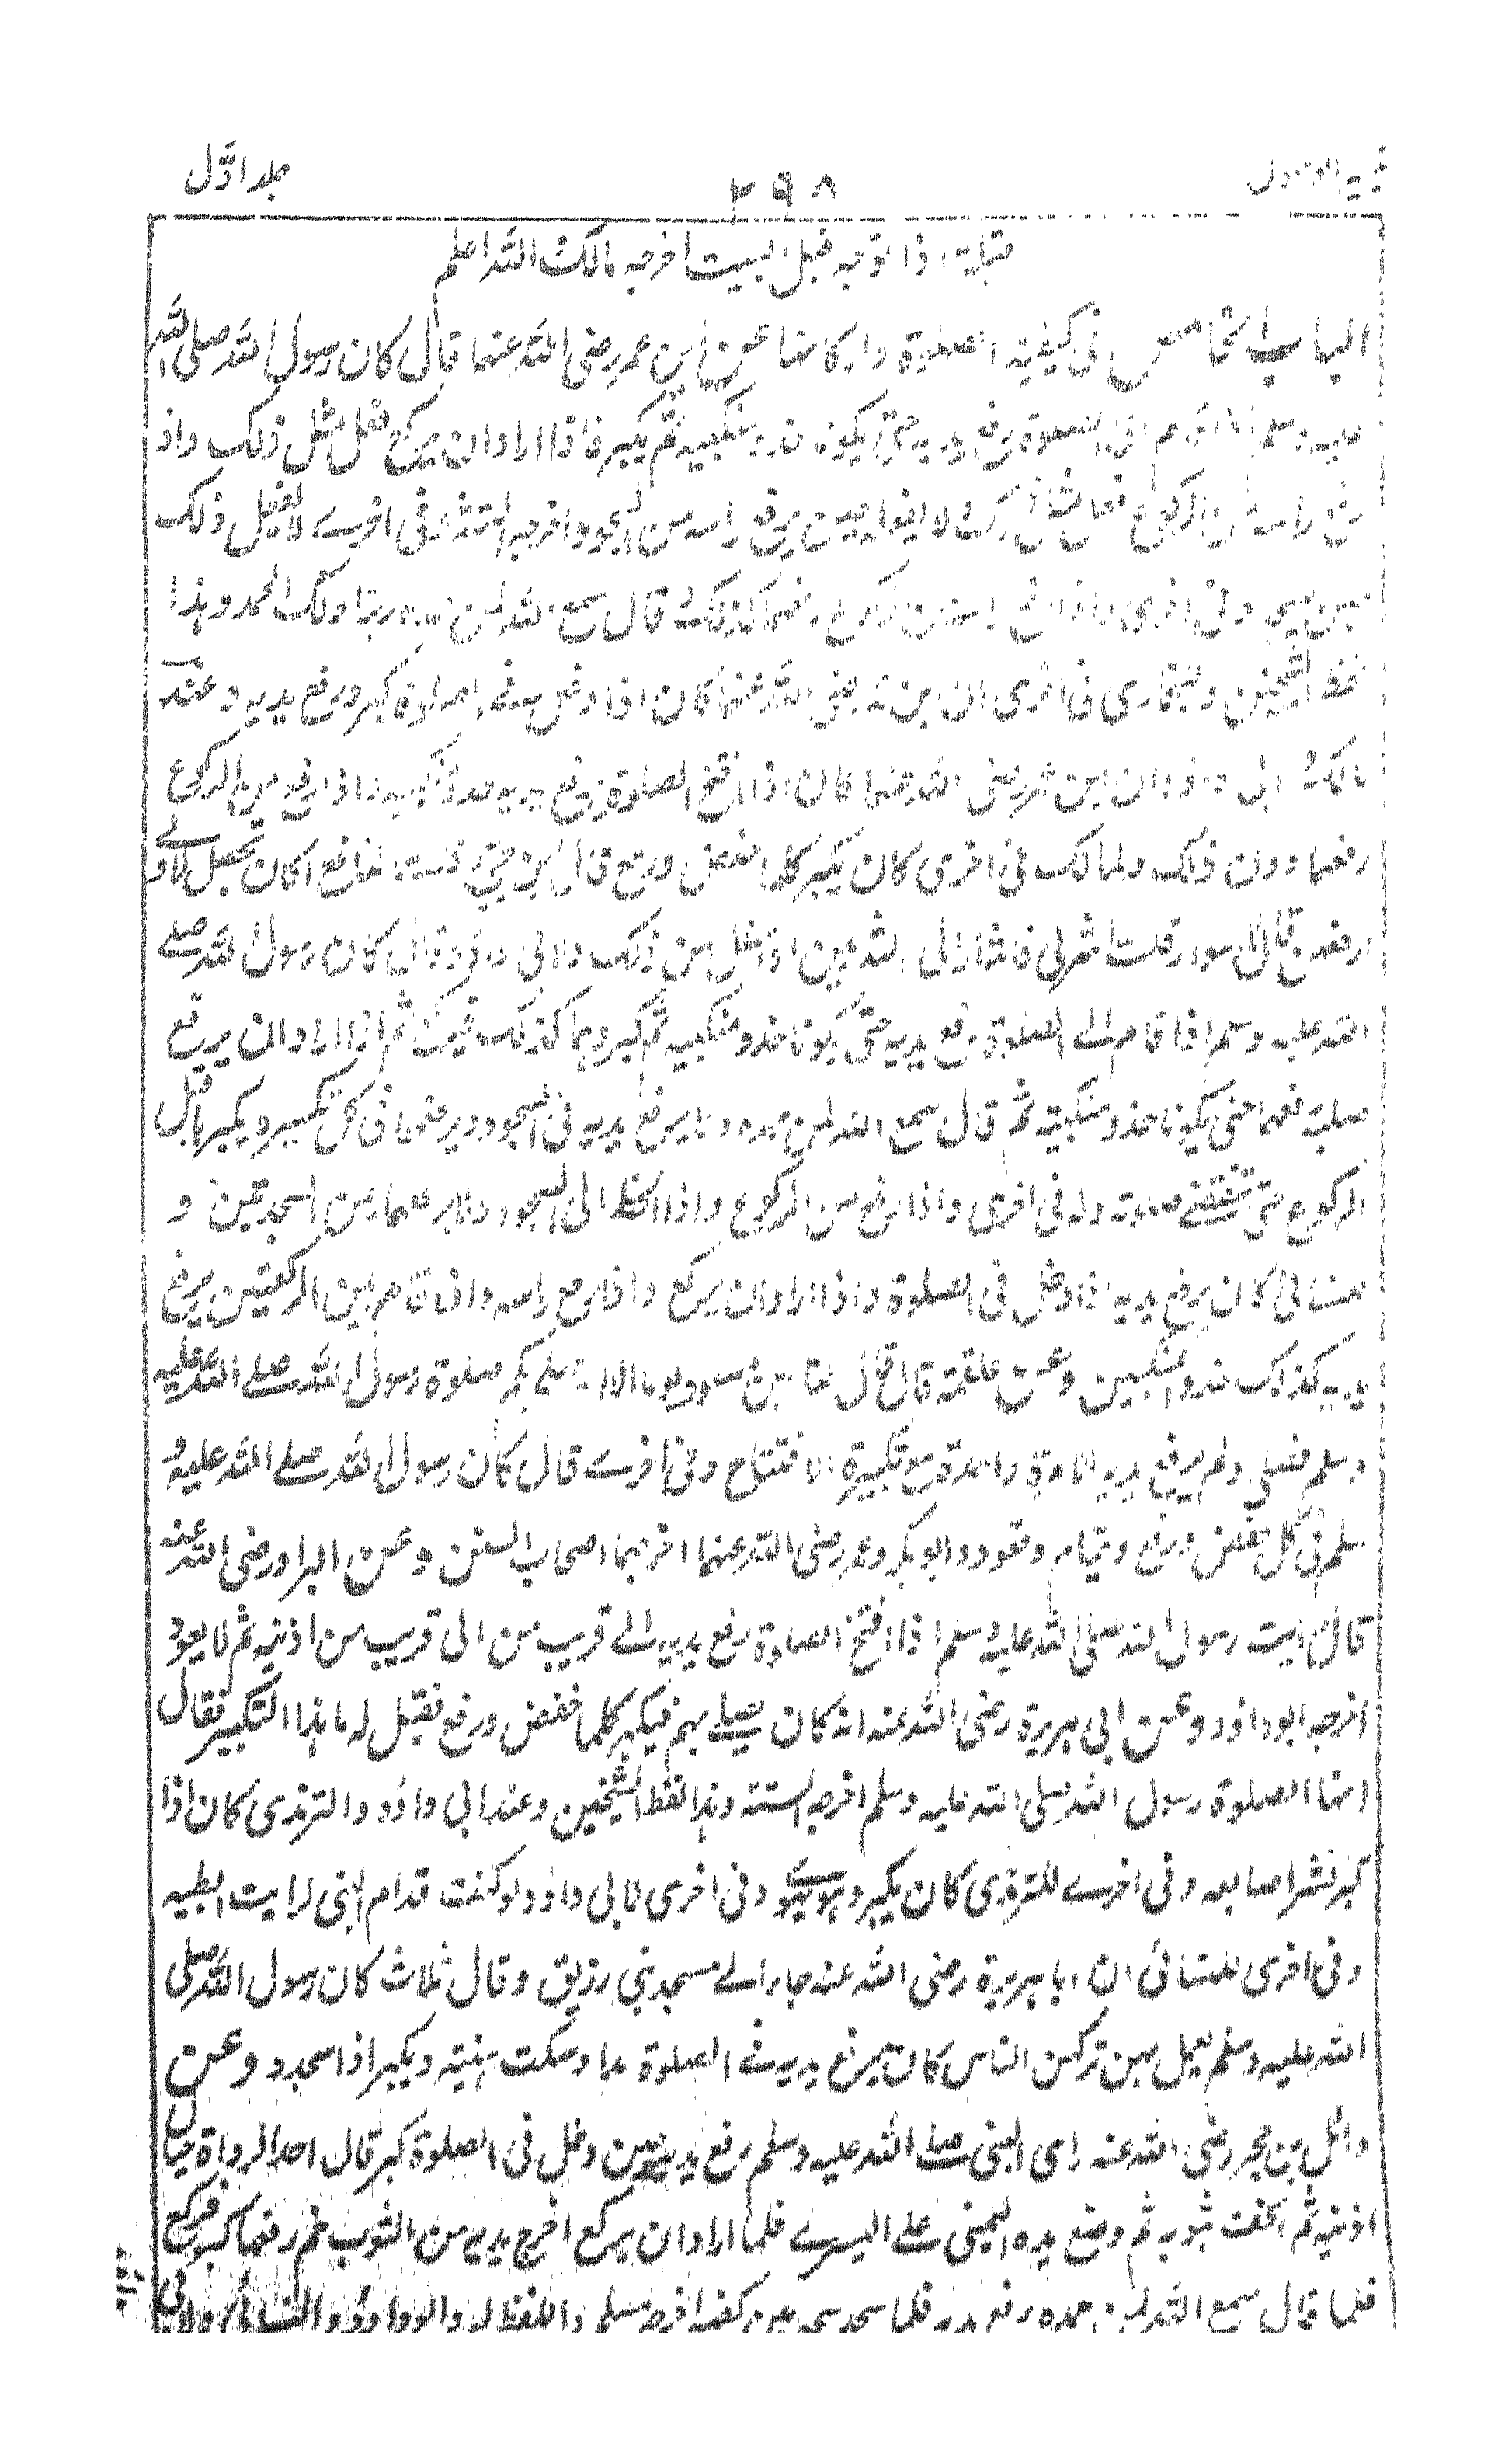 جلد اوّل
۲۹۸
قبلة اذا توجه قبل البيت اخرجه مالك والله اعلم
الباب الخامس فى كيفية الصلوة واركانها عن ابن عمر رضى الله عنهما قال كان رسول الله صلى الله
عليه وسلم اذا قام الى الصلوة رفع يديه حتى يكونا حذو منكبيه ثم يكبر فاذا اراد ان يركع فعل مثل ذلك واذا
رفع راسه من الركوع فعل مثل ذلك ولا يفعله حين يرفع راسه من السجود اخرجه الستة وفى اخرے لا يفعل ذلك
حين يسجد وفى اخرى واذا رفع راسه من الركوع رفعهما كذلك وقال سمع الله لمن حمده ربنا ولك الحمد وهذا
لفظ الشيخين وللبخارى فى اخرى ان ابن عمر رضى الله عنهما كان اذا دخل فے الصلوة كبر ورفع يديه وعند
مالك وابى داؤد ان ابن عمر رضى الله عنهما كان اذا افتتح الصلوة رفع يديه حذو منكبيه واذا رفع من الركوع
رفعهما دون ذلك ولمالك فى اخرى كان يكبر كلما خفض ورفع قال ابن جريج قلت لنافع اكان يجعل الاولے
ارفعهن قال لا سواء قلت اشر لى فاشار الى الثديين او اسفل من ذلك ولابى داؤد قال كان رسول الله صلے
الله عليه وسلم اذا قام الے الصلوة رفع يديه حتى يكونا حذو منكبيه ثم كبر وهما كذلك فيركع ثم اذا اراد ان يرفع
صلبه رفعهما حتى يكونا حذو منكبيه ثم قال سمع الله لمن حمده ولا يرفع يديه فى السجود ويرفعهما فى كل تكبيرة يكبرها قبل
الركوع حتى تنقضے صلوته وله فى اخرى واذا رفع من الركوع واذا انحط الى السجود ولا يرفعهما بين السجدتين و
للنسائى كان يرفع يديه اذا دخل فى الصلوة واذا اراد ان يركع واذا رفع راسه واذا قام بين الركعتين يرفع
يديه كذلك حذو المنكبين وعن علقمة قال قال لنا ابن مسعود يوما الا اصلى بكم صلوة رسول الله صلے الله عليه
وسلم فصلى ولم يرفع يديه الا مرة واحدة مع تكبيرة الافتتاح وفى اخرے قال كان رسول الله صلے الله عليه و
سلم يكبر فى كل خفض ورفع وقيام وقعود وابو بكر وعمر رضى الله عنهما اخرجهما اصحاب السنن وعن البراء رضى الله عنه
قال رايت رسول الله صلى الله عليه وسلم اذا افتتح الصلوة رفع يديه الے قريب من الى قريب من اذنيه ثم لا يعود
اخرجه ابو داؤد وعن ابى هريرة رضى الله عنه انه كان يصلے بهم فيكبر كلما خفض ورفع فقيل له ما هذا التكبير فقال
انها لصلوة رسول الله صلى الله عليه وسلم اخرجه الستة وهذا لفظ الشيخين وعند ابى داؤد والترمذى كان اذا
كبر نشر اصابعه وفى اخرے للترمذى كان يكبر وهو يهوے وفى اخرى لابى داؤد لو كنت قدام النبى لرايت ابطيه
وفى اخرى للنسائى ان ابا هريرة رضى الله عنه جاء الے مسجد بنى رزيق وقال ثلاث كان رسول الله صلى
الله عليه وسلم يعمل بهن تركهن الناس كان يرفع يديه فے الصلوة مدا وسكت هنيئة ويكبر اذا سجد وعن
وائل بن حجر رضى الله عنه راى النبى صلے الله عليه وسلم رفع يديه حين دخل فى الصلوة كبر قال احد الرواة حيال
اذنيه ثم التحف بثوبه ثم وضع يده اليمنى على اليسرے فلما اراد ان يركع اخرج يديه من الثوب ثم رفعهما كبر فركع
فلما قال سمع الله لمن حمده رفع يديه فلما سجد سجد بين كفيه اخرجه مسلم واللفظ له وابو داؤد والنسائى ولابى